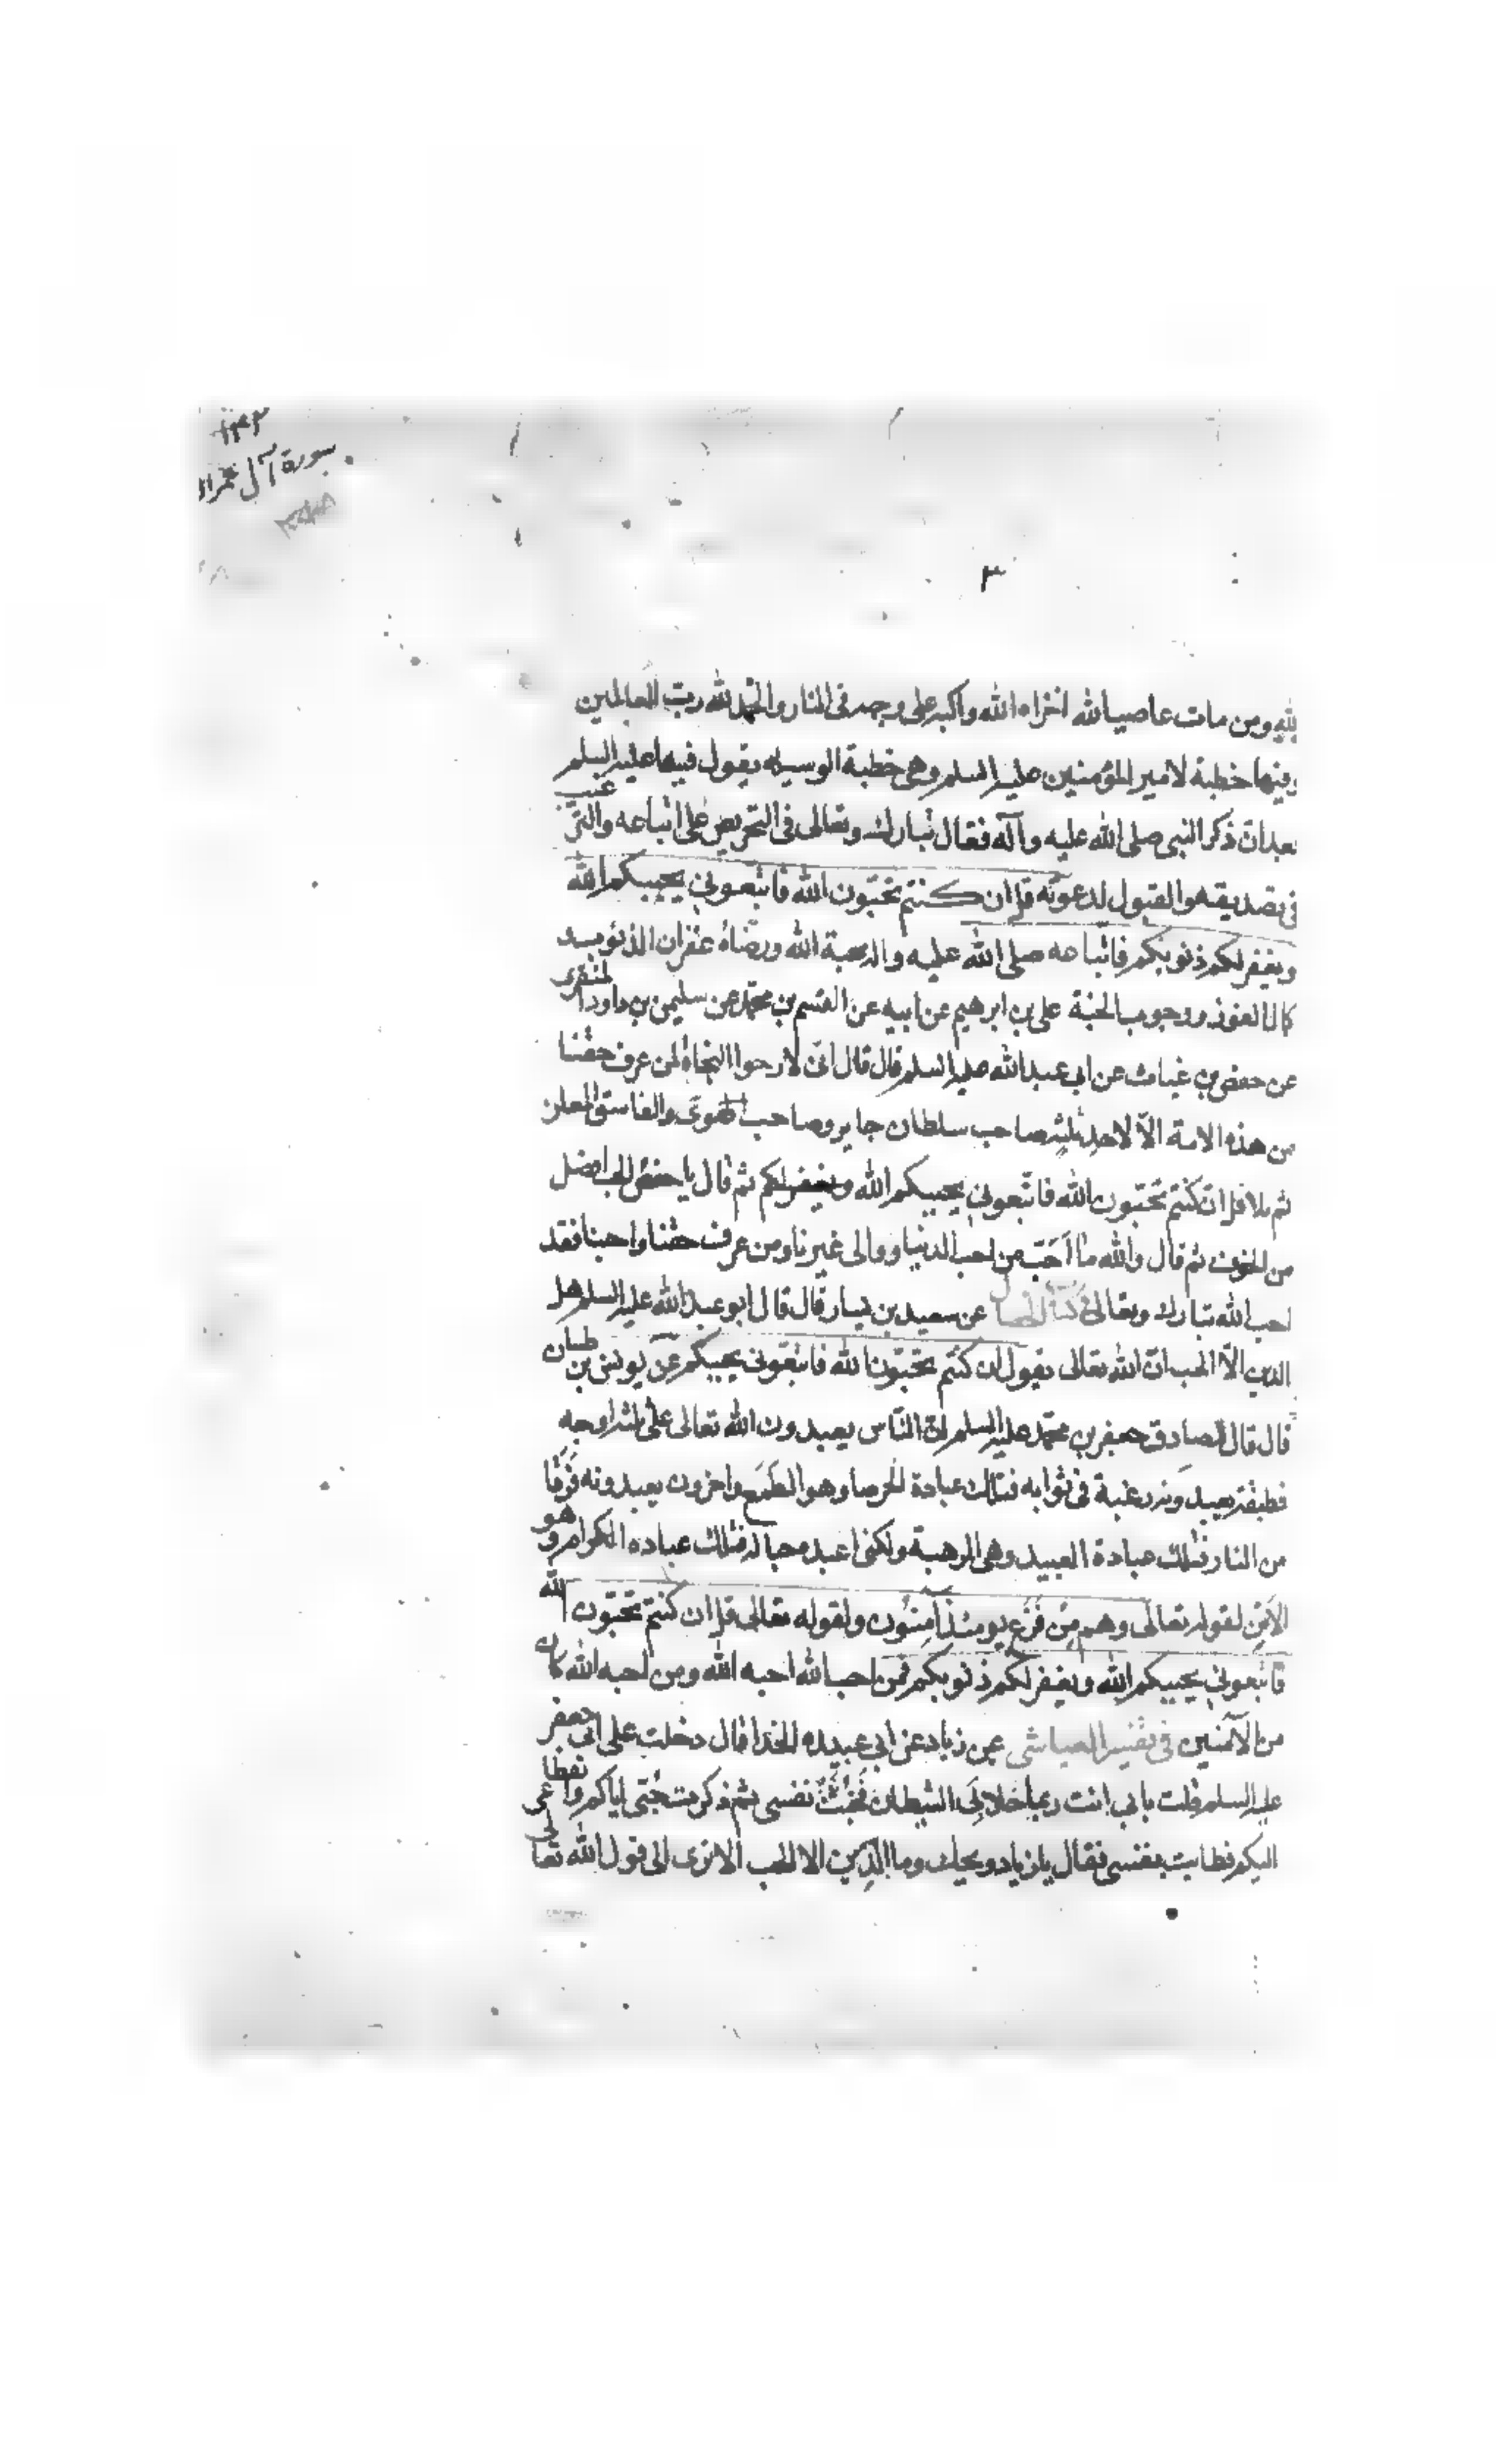 ١٤٢
سورة آل عمران
٣
لله ومن مات عاصيا لله اخزاه الله واكبه على وجهه فى النار والحمد لله رب العالمين
وفيها خطبة لامير المؤمنين عليه السلم وهى خطبة الوسيلة يقول فيها عليه السلم
بعد ان ذكر النبى صلى الله عليه وآله فقال تبارك وتعالى فى التحريص على اتباعه والترغيب
فى تصديقه والقبول لدعوته قل ان كنتم تحبّون الله فاتّبعونى يحببكم الله
ويغفر لكم ذنوبكم فاتّباعه صلى الله عليه وآله محبة الله ورضاه غفران الذنوب
كمال الفوز ووجوب الجنة على بن ابرهيم عن ابيه عن القسم بن محمّد عن سليمن بن داود المنقرى
عن حفص بن غياث عن ابى عبد الله عليه السلم قال قال انى لارجوا النجاة لمن عرف حقّنا
من هذه الامة الّا لاحد ثلثه صاحب سلطان جاير وصاحب هوى والفاسق المعلن
ثم تلا قل ان كنتم تحبّون الله فاتّبعونى يحببكم الله ويغفر لكم ثم قال يا حفص الحب افضل
من الخوف ثم قال والله ما اَحَبّ من احب الدنيا ووالى غيرنا ومن عرف حقنا واحبنا فقد
احب الله تبارك وتعالى كتاب الخصال عن سعيد بن يسار قال قال ابو عبد الله عليه السلم هل
الدين الّا الحب ان الله تعالى يقول ان كنتم تحبّون الله فاتبعونى يحببكم عن يونس بن ظبيان
قال قال الصادق جعفر بن محمّد عليه السلم انّ النّاس يعبدون الله تعالى على ثلثة اوجه
فطبقة يعبدونه رغبة فى ثوابه فتلك عبادة الحرصاء وهو الطمع واخرون يعبدونه فَرَقًا
من النار فتلك عبادة العبيد وهى الرهبة ولكنى اعبده حبا له فتلك عبادة الكرام وهو
الامن لقوله تعالى وهم مِن فَزَع يومئذ آمنون ولقوله تعالى قل ان كنتم تحبّون الله
فاتبعونى يحببكم الله ويغفر لكم ذنوبكم فمن احب الله احبه الله ومن احبه الله كان
من الآمنين فى تفسير العياشى عن زياد عن ابى عبيده الحذا قال دخلت على ابى جعفر
عليه السلم فقلت بابى انت ربما خلا بى الشيطان فَخَبُثَتْ نفسى ثم ذكرت حُبّى اياكم وانقطاعى
اليكم فطابت نفسى فقال يا زياد ويحك وما الدّين الا الحب الا ترى الى قول الله تعالى